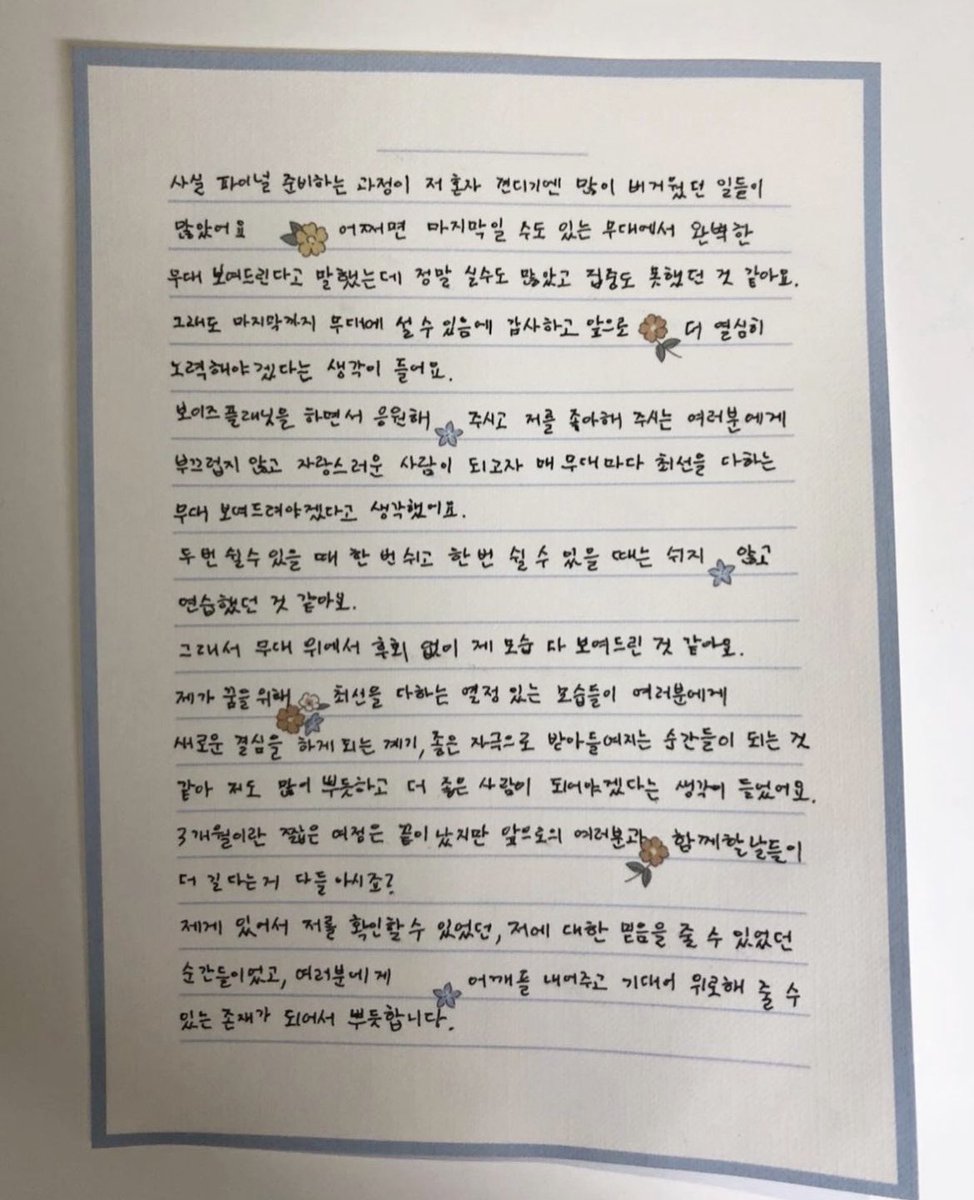 사실 파이널 준비하는 과정이 저 혼자 견디기엔 많이 버거웠던 일들이
많았어요 어쩌면 마지막일 수도 있는 무대에서 완벽한
무대 보여드린다고 말했는데 정말 실수도 많았고 집중도 못했던 것 같아요.
그래도 마지막까지 무대에 설 수 있음에 감사하고 앞으로 더 열심히
노력해야겠다는 생각이 들어요.
보이즈플래닛을 하면서 응원해 주시고 저를 좋아해 주시는 여러분에게
부끄럽지 않고 자랑스러운 사람이 되고자 매 무대마다 최선을 다하는
무대 보여드려야겠다고 생각했어요.
두 번 쉴 수 있을 때 한 번 쉬고 한 번 쉴 수 있을 때는 쉬지 않고
연습했던 것 같아요.
그래서 무대 위에서 후회 없이 제 모습 다 보여드린 것 같아요.
제가 꿈을 위해 최선을 다하는 열정 있는 모습들이 여러분에게
새로운 결심을 하게 되는 계기, 좋은 자극으로 받아들여지는 순간들이 되는 것
같아 저도 많이 뿌듯하고 더 좋은 사람이 되어야겠다는 생각이 들었어요.
3개월이란 짧은 여정은 끝이 났지만 앞으로의 여러분과 함께할 날들이
더 길다는거 다들 아시죠?
제게 있어서 저를 확인할 수 있었던, 저에 대한 믿음을 줄 수 있었던
순간들이었고, 여러분에게 어깨를 내어주고 기대어 위로해 줄 수
있는 존재가 되어서 뿌듯합니다.